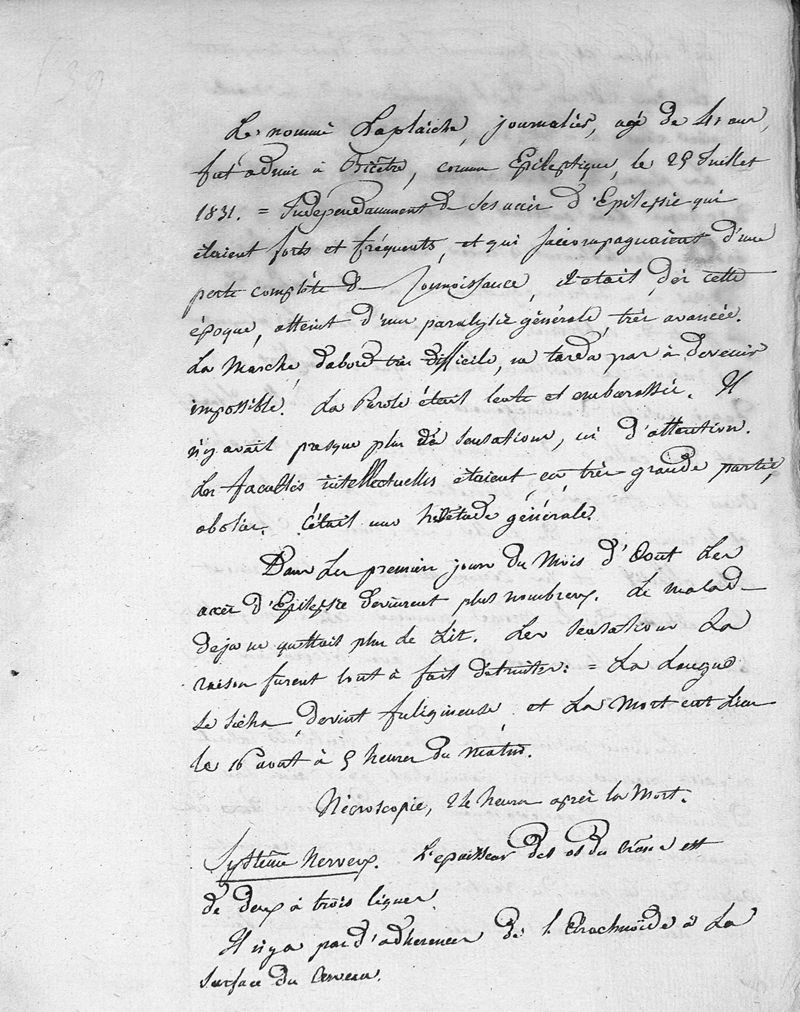 Le nommé Laplaiche, journalier, agé de 41 ans,
fut admis à Bicêtre, comme Epileptique, le 25 Juillet
1831. = Indépendamment de ses accès d'Epilepsie qui
étaient forts et fréquents, et qui s'accompagnaient d'une
perte complète de Connoissance, il etait, dès cette
époque, atteint d'une paralysie générale, très avancée.
La Marche, d'abord très difficile, ne tarda pas à devenir
impossible. La Parole était lente et embarassée. Il
n'y avait presque plus de sensations, ni d'attention.
Les facultés intellectuelles étaient en très grande partie,
abolies. C'était une hébétude générale.
Dans les premiers jours du Mois d'Aout Les
accès d'Epilepsie devinrent plus nombreux. Le malade
deja ne quittait plus le Lit. Les sensations La
raison furent tout à fait détruites: = La Langue
se sécha, devint fuligineuse et La Mort eut Lieu
le 16 aout à 5 heures du matin.
Nécroscopie, 24 heures après la Mort.
Système Nerveux. L'epaisseur des os du Crâne est
de deux à trois lignes.
Il n'y a pas d'adherences de l'Arachnoïde à La
surface du Cerveau.